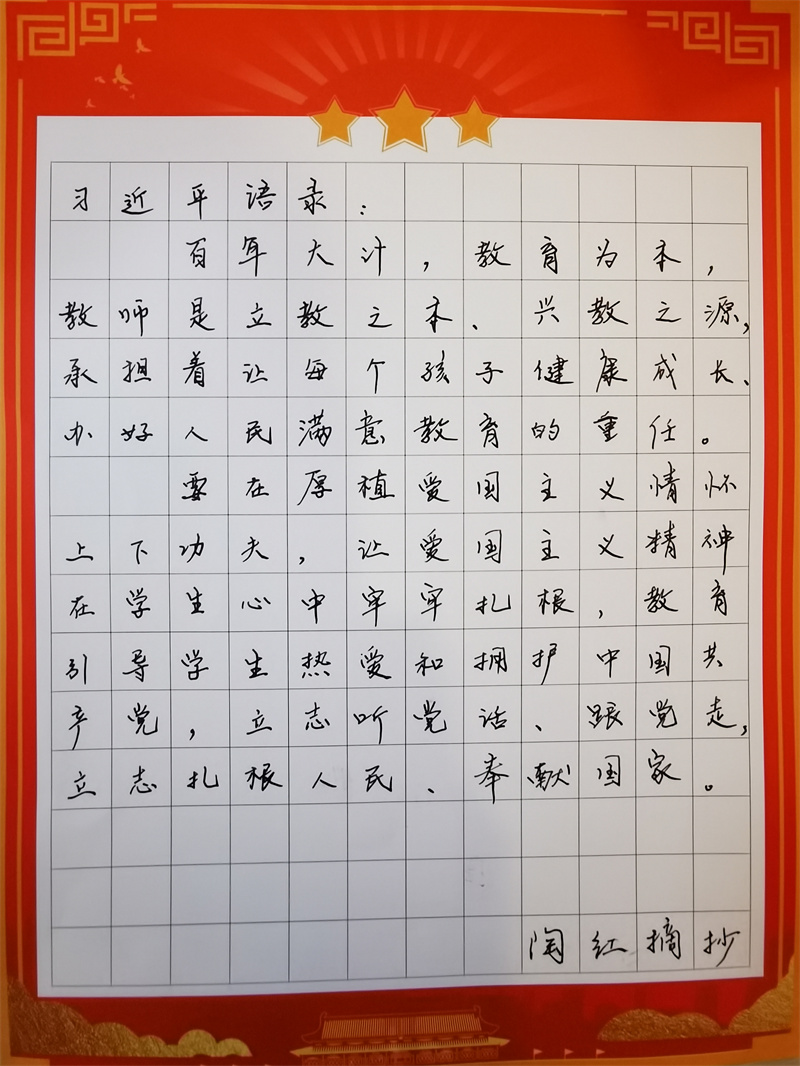 习近平语录：
百年大计，教育为本，
教师是立教之本、兴教之源，
承担着让每个孩子健康成长、
办好人民满意教育的重任。
要在厚植爱国主义情怀
上下功夫，让爱国主义精神
在学生心中牢牢扎根，教育
引导学生热爱和拥护中国共
产党，立志听党话、跟党走，
立志扎根人民、奉献国家。
陶红摘抄